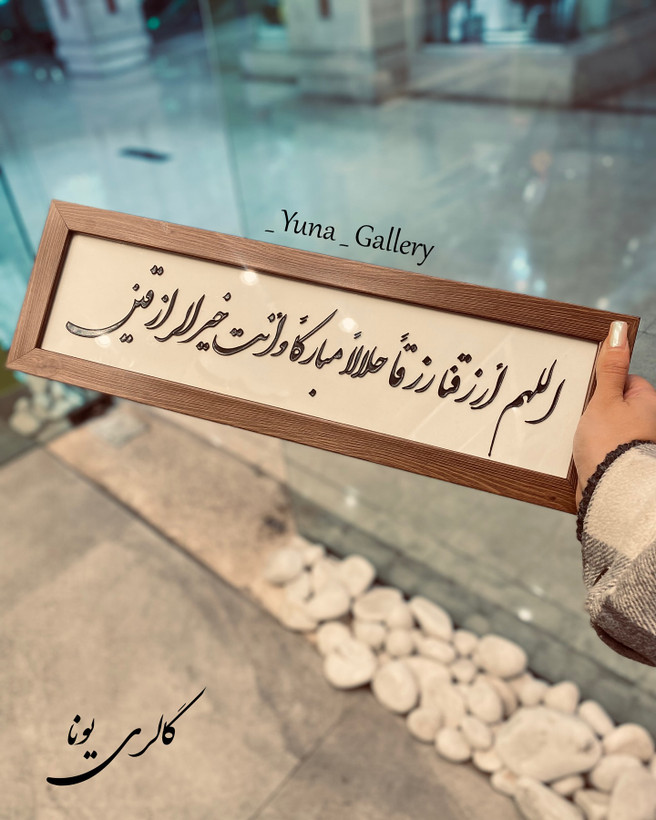 _ Yuna _ Gallery
اللهم أرزقنا رزقاً حلالاً مباركاً وأنت خير الرازقين
گالری یونا